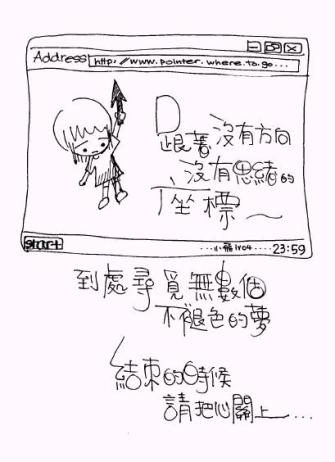 Address http://www.pointer.where.to.go...
跟著沒有方向
沒有思緒的
座標～
start ...小額1704....23:59
到處尋覓無數個
不褪色的夢
結束的時候
請把心關上...